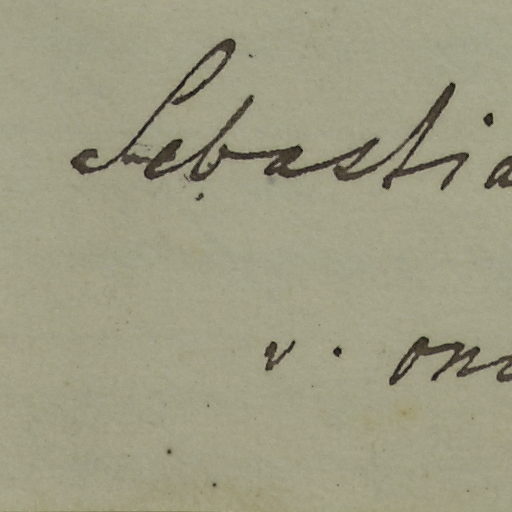 Sebastia
v. ono